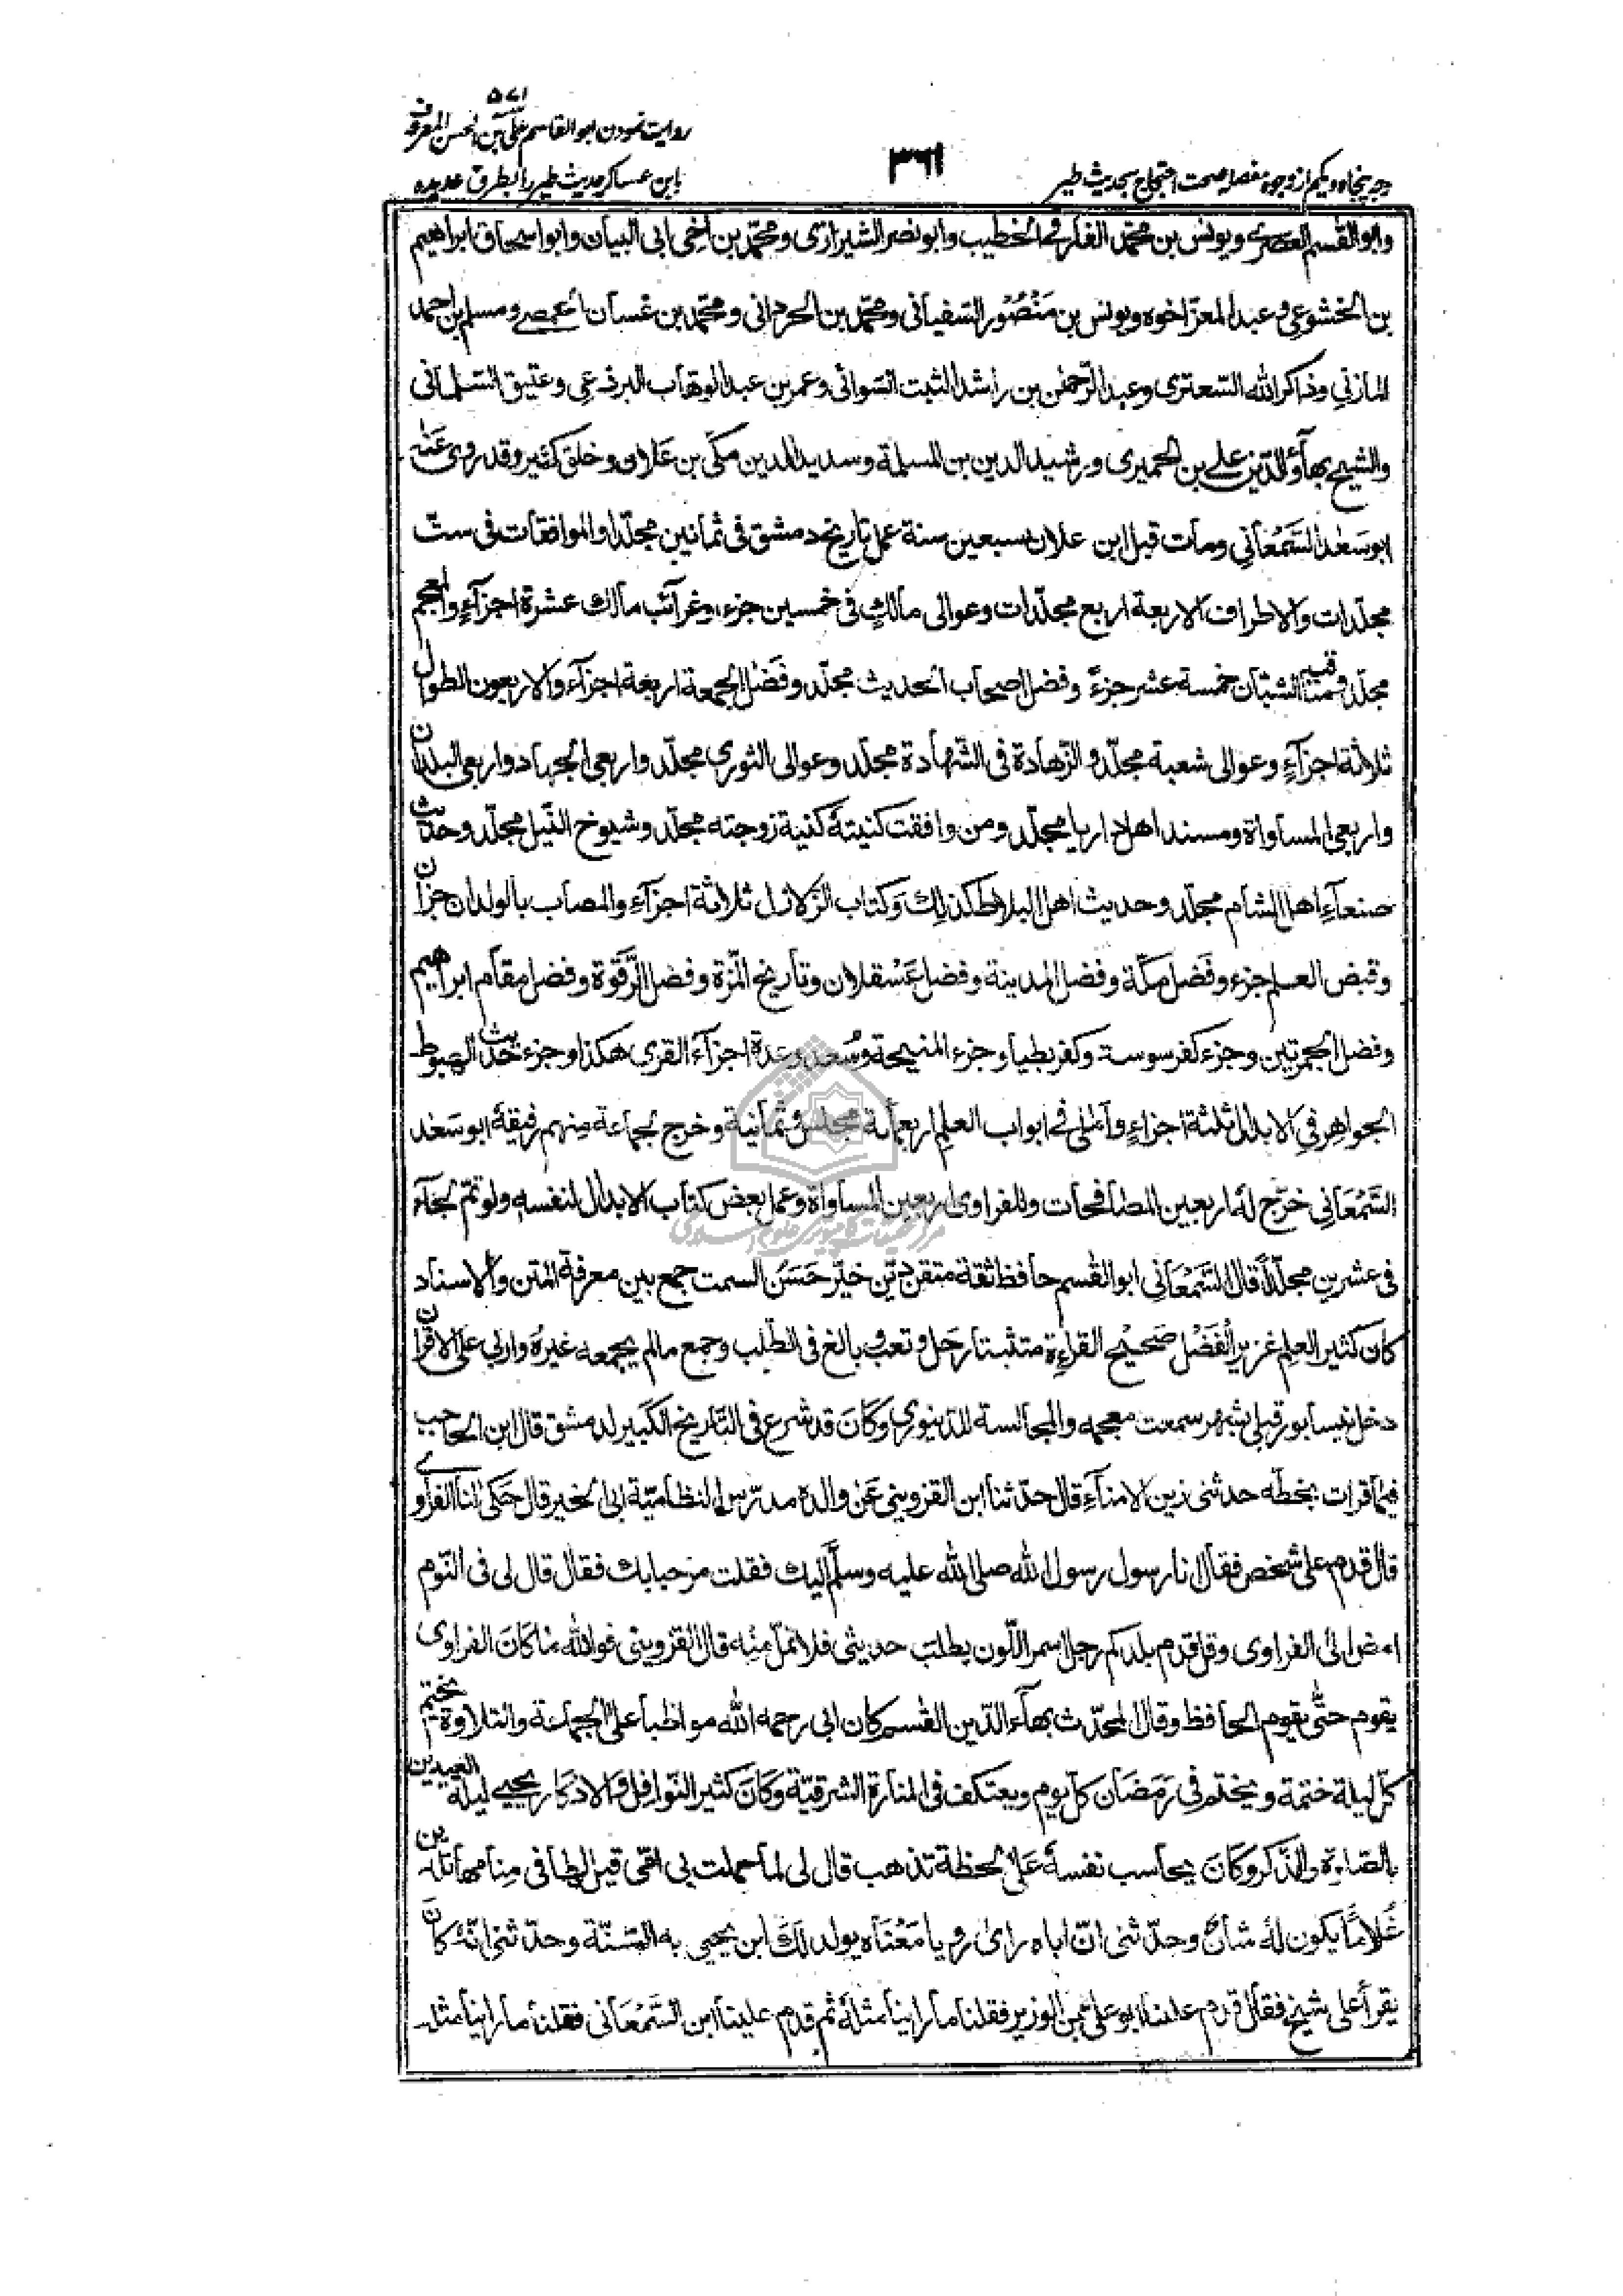 وجه پنجاه و یکم از وجوه مفصله صحت احتجاج بحدیث طیر
۳۶۱
۵۷۱
روایت نمودن ابو القاسم علی بن الحسن المعروف
بابن عساکر حدیث طیر را بطرق عدیده
وابو القسم العصرے ویونس بن محمّد الفارقی الخطیب وابو نصر الشیرازی ومحمّد بن اخی ابی البیان وابو اسحاق ابراهیم
بن الخشوعی وعبد المعز اخوه ویونس بن مَنْصُور السّفیانی ومحمّد بن الحردانی ومحمّد بن غسان الحمصے ومسلم بن احمد
المازنی وذاکر الله السّعتری وعبد الرّحمٰن بن راشد الثبت السّوائی وعمر بن عبد الوهّاب البرذعی وعتیق السّلمانی
والشیخ بهآؤ الدّین علے بن الحمیری ورشید الدین بن المسلمة وسدید الدین مکّی بن علان وخلق کثیر وقد روی عَنْه
ابو سَعْد السَّمْعانی ومات قبل ابن علان بسبعین سنة عمل تاریخ دمشق فی ثمانین مجلّدا والموافقات فی ستّ
مجلّدات والاطراف الاربعة اربع مجلّدات وعوالی مالك فی خمسین جزء وغرائب مالك عشرة اجزآءٍ والمعجم
مجلّد ومناقب الشبّان خمسة عشر جزءً وفضل اصحاب الحدیث مجلّد وفَضْل الجمعة اربعة اجزآء والاربعون الطوال
ثلاثة اجزآءٍ وعوالی شعبة مجلّد والزّهادة فی الشّهادة مجلّد وعوالی الثوری مجلّد واربعی الجهاد واربعی البلدان
واربعی المساواة ومسند اهل داریا مجلّد ومن وافقت کنیتهٗ کنیة زوجته مجلّد وشیوخ النّبل مجلّد وحدیث
صنعآءِ اهل الشام مجلّد وحدیث اهل البلاط کذلك وَکتاب الزّلازل ثلاثة اجزآءِ والمصاب بالولدان جزآن
وقبض العلم جزء وفَضل مکّة وفضل المدینة وفضل عَسْقلان وتاریخ المّزة وفضل الرَّقوة وفضل مقام ابراهیم
وفضل الجمرتین وجزء کفر سوسة وکفر بطیا وجزء المنیحة وسُعد وعدة اجزآء القری هکذا وجزء حدیث الهبوط
الجواهر فی الابدال ثلثة اجزاءٍ وآملی فی ابواب العلم اربعمأة مجلس وثمانیة وخرج لجماعة منهم رفیقهٔ ابو سَعْد
السَّمْعانی خرّج لهٔ اربعین المصافحات وللفراوی اربعین المساواة وعمل بعض کتاب الابدال لنفسه ولو تمّ لجآء
فی عشرین مجلّدًا قال السَّمْعانی ابو القٰسم حافظ ثقة متقن دیّن خیّر حَسَنُ السمت جمع بین معرفة المتن والاسناد
کان کثیر العلم غزیر الفَضْل صَحیْح القراءة متثبتا رحل وتعب وبالغ فی الطّلب وجمع ما لم یجمعه غیرهٔ واربی علی الاقران
دخل نیسابور قبلی بشهر سمعت معجمه والمجالسة للدّینوری وکَانَ قد شرع فی التّاریخ الکَبیر لدمشق قال ابن الحاجب
فیما قرات بخطّه حدثنی زین الامنآءِ قال حدّثنا ابن القزوینی عَن والده مدرّس النظامیّة ابی الخیر قال حَکی لنا الفراوی
قال قدم علی شخص فقال انا رسول رسول الله صلی الله علیه وسلّم الیك فقلت مرحبا بك فقال قال لی فی النّوم
امض الی الفراوی وقل قدم بلدکم رجل اسمر اللّون یطلب حدیثی فلا تملّ مِنْه قال القزوینی فوالله مَا کَانَ الفراوی
یقوم حتّی یقوم الحافظ وقال المحدّث بهآء الدّین القٰسم کان ابی رحمه الله مواظبا علی الجماعة والتلاوة یختم
کلّ لیلة ختمة ویختم فی رَمَضَان کلّ یوم ویعتکف فی المنارة الشرقیّة وکَانَ کثیر النّوافل والاذکار یحیے لیلة العیدین
بالصّلوة والذّکر وکَانَ یحاسب نفسهٔ عَلیٰ لحظة تذهب قال لی لما حملت بی امّی قیل لها فی مَنامها تلدین
غُلامًا یکون لهٔ شأنٌ وحدّثنی انّ اباه رایٰ رویا مَعْنَاه یولد لكَ ابن یحیی به السّنّة وحدّثنی انّهٔ کَانَ
یقرأ علی شیخٍ فقال قدم علینا ابو علی بن الوزیر فقلنا ما راینا مثلهٔ ثم قدم علینا ابن السَّمْعانی فقلنا ما راینا مثله
مرکز تحقیقات کامپیوتری علوم اسلامی